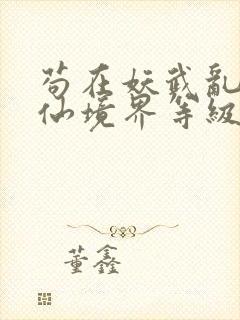 苟在妖武亂
仙境界等級
董鑫